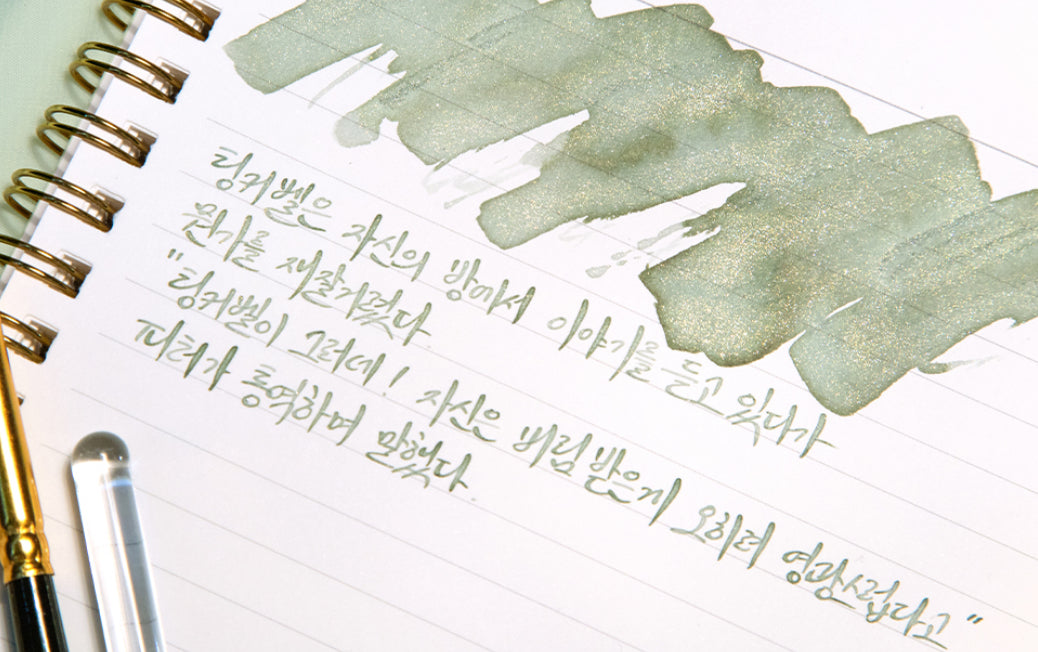 팅커벨은 자신의 방에서 이야기를 듣고 있다가
뭔가를 재잘거렸다.
"팅커벨이 그러네! 자신은 버림받은게 오히려 영광스럽다고"
피터가 통역하며 말했다.